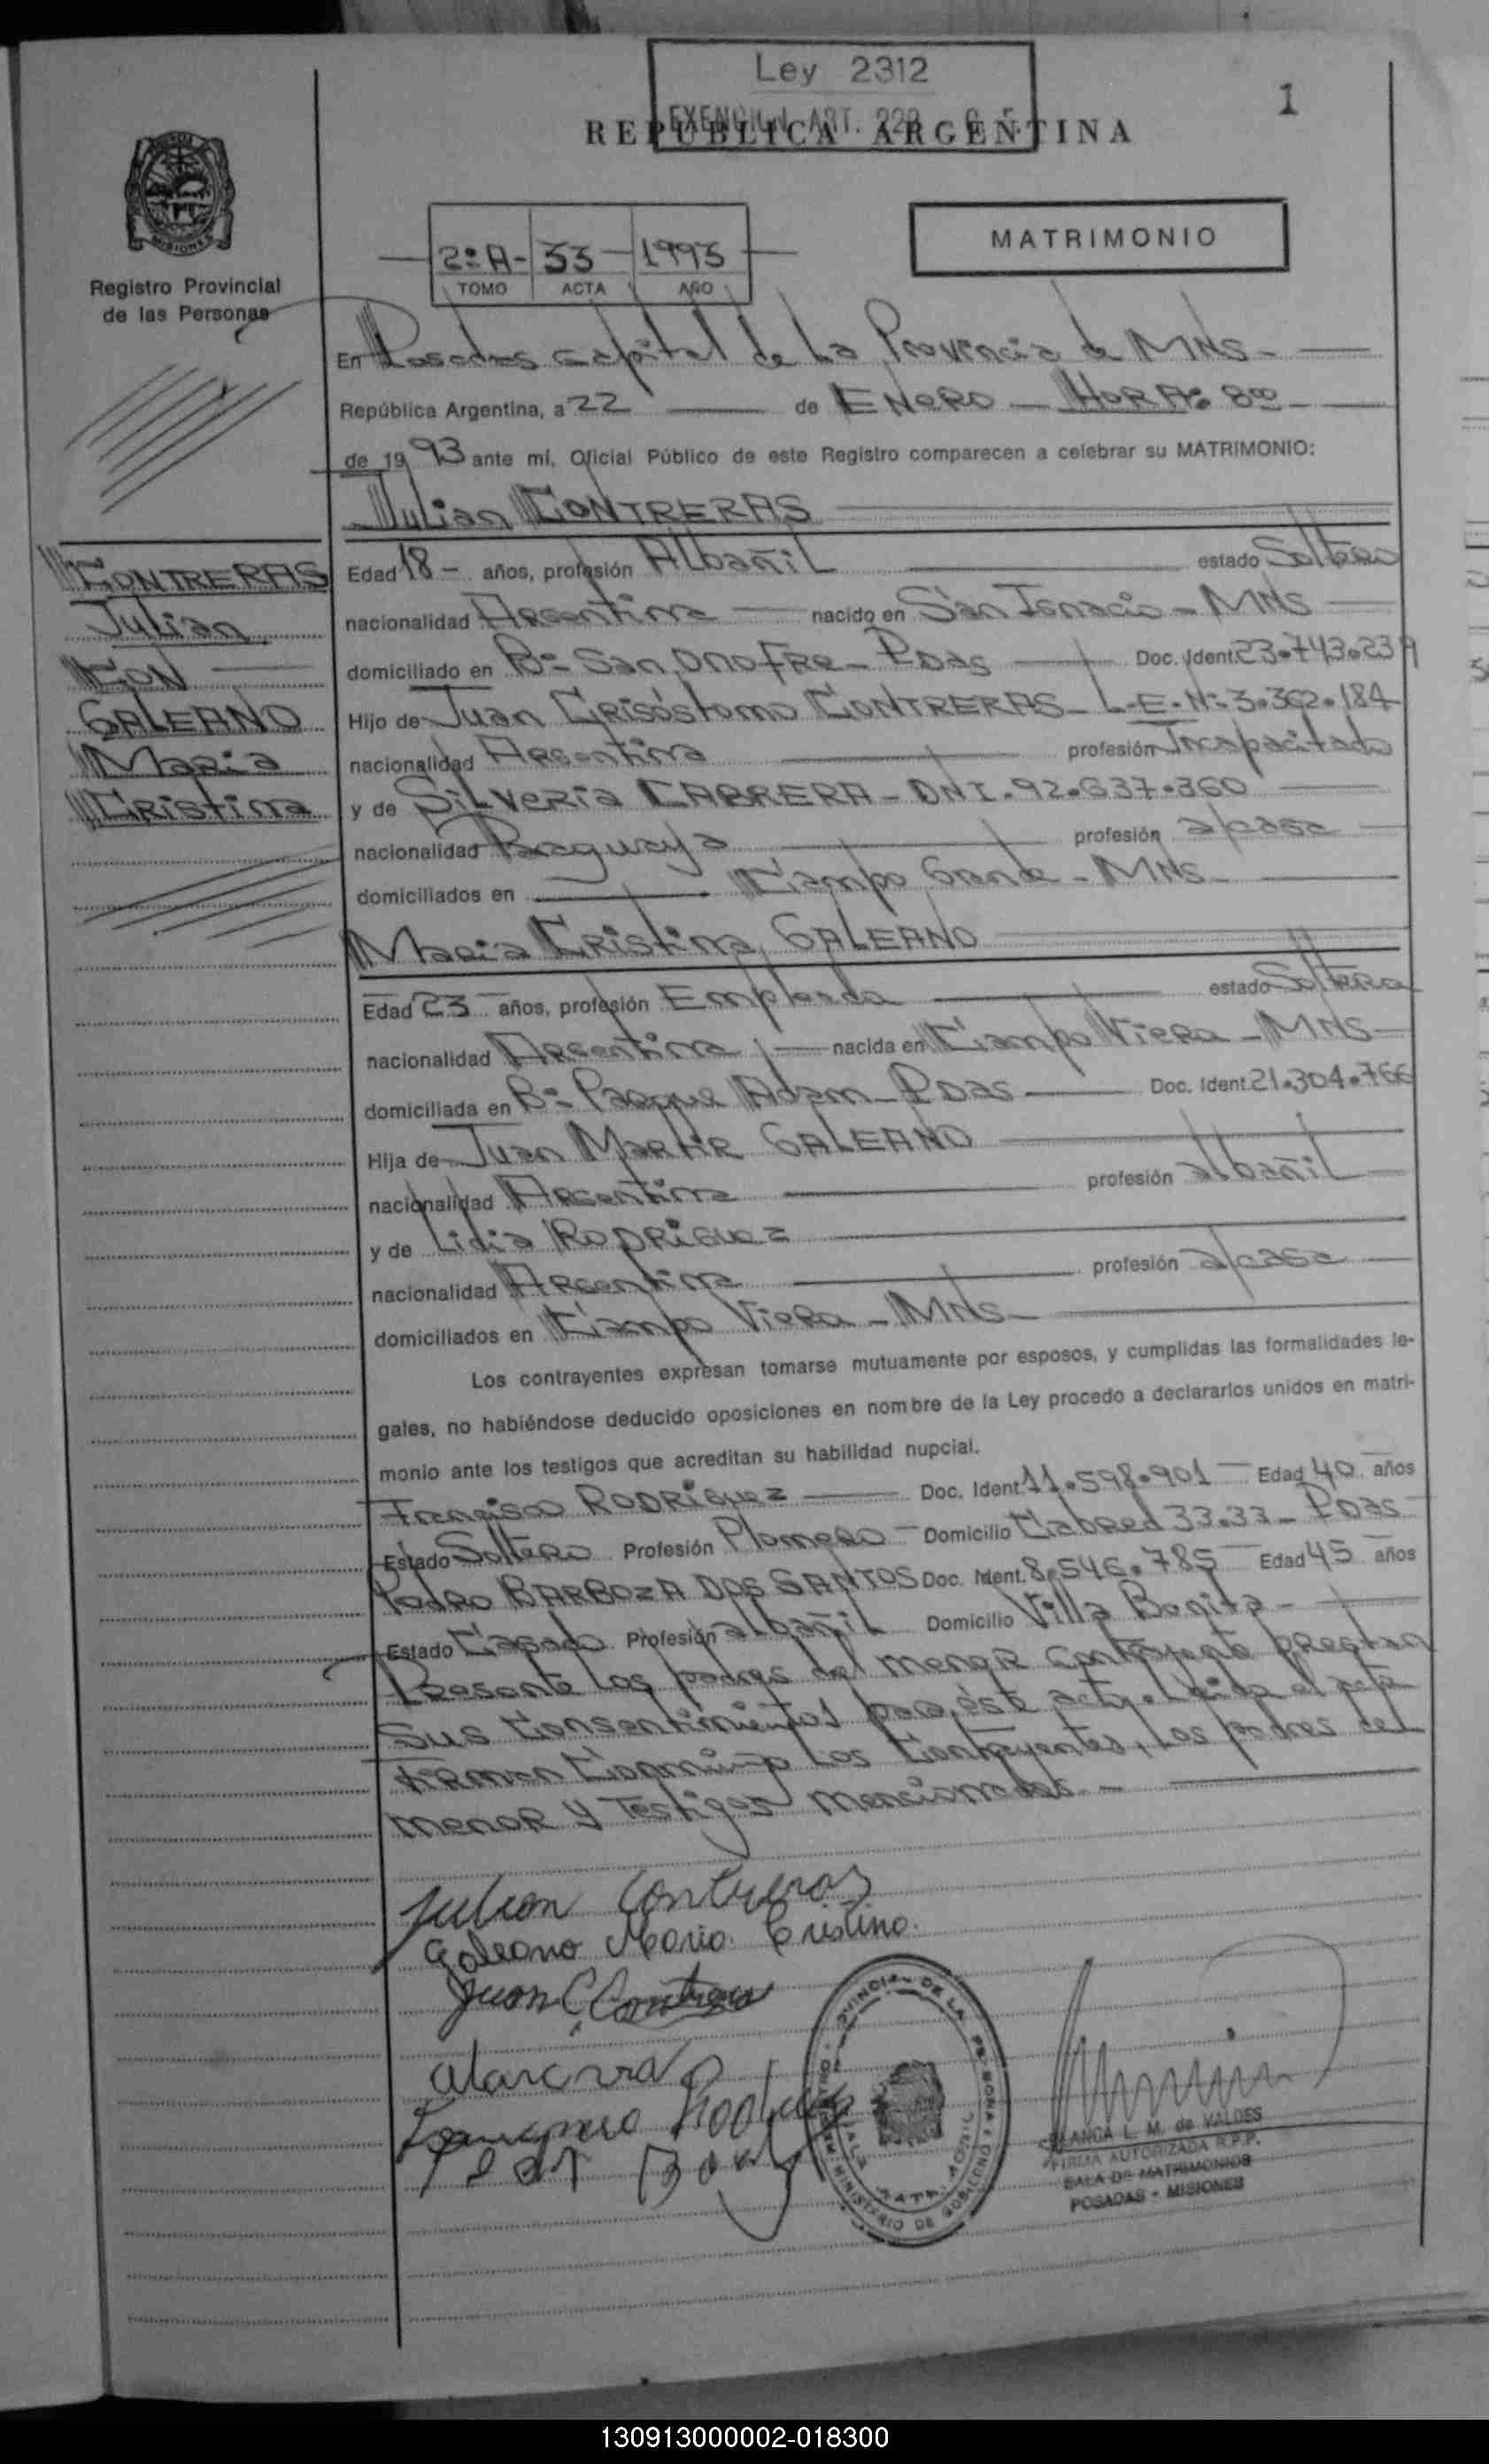 Ley 2312
EXENCION ART. 222
REPUBLICA ARGENTINA
1
MISIONES
Registro Provincial
de las Personas
2º A - 33 - 1993
TOMO ACTA AÑO
MATRIMONIO
En Posadas capital de La Provincia de MNS -
República Argentina, a 22 de ENERO - HORA: 8ºº -
de 1993 ante mí, Oficial Público de este Registro comparecen a celebrar su MATRIMONIO:
Julian CONTRERAS
CONTRERAS
Julian
CON
GALEANO
Maria
Cristina
Edad 18 - años, profesión Albañil estado Soltero
nacionalidad Argentina nacido en San Ignacio - MNS
domiciliado en Bº San Onofre - Pdas Doc. Ident. 23.743.239
Hijo de Juan Crisóstomo CONTRERAS - L.E. Nº 3.362.184
nacionalidad Argentina profesión Incapacitado
y de Silveria CABRERA - DNI. 92.637.360
nacionalidad Paraguaya profesión a/casa
domiciliados en Campo Grande - MNS -
Maria Cristina GALEANO
Edad 23 años, profesión Empleada estado Soltera
nacionalidad Argentina nacida en Campo Viera - MNS -
domiciliada en Bº Parque Adam - Pdas Doc. Ident. 21.304.766
Hija de Juan Martir GALEANO
nacionalidad Argentina profesión albañil
y de Lidia RODRIGUEZ
nacionalidad Argentina profesión a/casa
domiciliados en Campo Viera - MNS -
Los contrayentes expresan tomarse mutuamente por esposos, y cumplidas las formalidades le-
gales, no habiéndose deducido oposiciones en nombre de la Ley procedo a declararlos unidos en matri-
monio ante los testigos que acreditan su habilidad nupcial.
Francisco RODRIGUEZ Doc. Ident. 11.598.901 Edad 40 años
Estado Soltero Profesión Plomero Domicilio Cabred 33.33 - Pdas
Pedro BARBOZA DOS SANTOS Doc. Ident. 8.546.785 Edad 45 años
Estado Casado Profesión albañil Domicilio Villa Bonita -
Presente los padres del menor contrayente prestan
sus consentimientos para éste acto. Leida el acta
firman conmigo los contrayentes, los padres del
menor y testigos mencionados -
Julian Contreras
Galeano Maria Cristina
Juan C. Contreras
BLANCA L. M. de VALDES
FIRMA AUTORIZADA R.P.P.
SALA DE MATRIMONIOS
POSADAS - MISIONES
MINISTERIO DE GOBIERNO
130913000002-018300